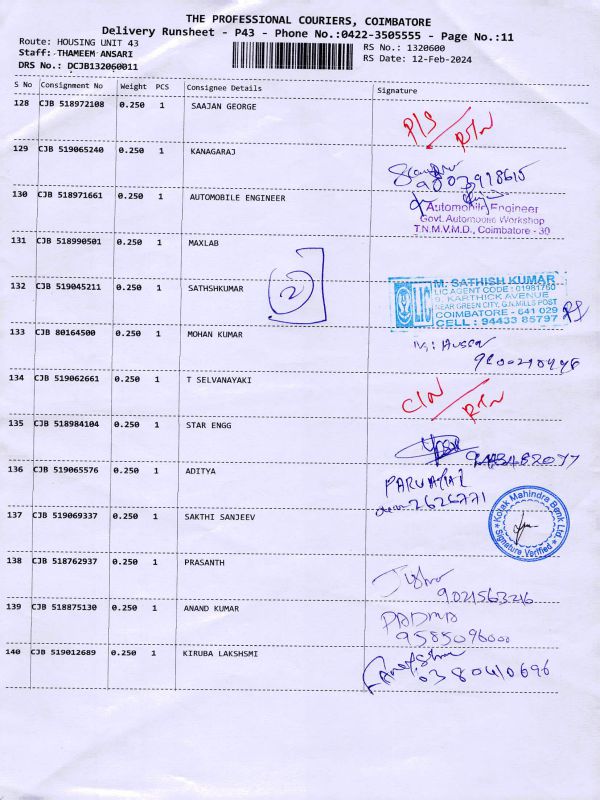 THE PROFESSIONAL COURIERS, COIMBATORE
Delivery Runsheet - P43 - Phone No.:0422-3505555 - Page No.:11
Route: HOUSING UNIT 43
RS No.: 1320600
Staff: THAMEEM ANSARI
RS Date: 12-Feb-2024
DRS No.: DCJB132060011
S No Consignment No Weight PCS Consignee Details Signature
128 CJB 518972108 0.250 1 SAAJAN GEORGE
129 CJB 519065240 0.250 1 KANAGARAJ
130 CJB 518971661 0.250 1 AUTOMOBILE ENGINEER
Automobile Engineer
Govt. Automobile Workshop
T.N.M.V.M.D., Coimbatore - 30
131 CJB 518990501 0.250 1 MAXLAB
132 CJB 519045211 0.250 1 SATHSHKUMAR
2
LIC
M. SATHISH KUMAR
LIC AGENT CODE : 01981760
9, KARTHICK AVENUE
NEAR GREEN CITY, G.N.MILLS POST
COIMBATORE - 641 029
CELL : 94433 85797
133 CJB 80164500 0.250 1 MOHAN KUMAR
134 CJB 519062661 0.250 1 T SELVANAYAKI
135 CJB 518984104 0.250 1 STAR ENGG
136 CJB 519065576 0.250 1 ADITYA
2626771
137 CJB 519069337 0.250 1 SAKTHI SANJEEV
Kotak Mahindra Bank Ltd.
Signature Verified
138 CJB 518762937 0.250 1 PRASANTH
9021563216
139 CJB 518875130 0.250 1 ANAND KUMAR
PADMA
9585096000
140 CJB 519012689 0.250 1 KIRUBA LAKSHSMI